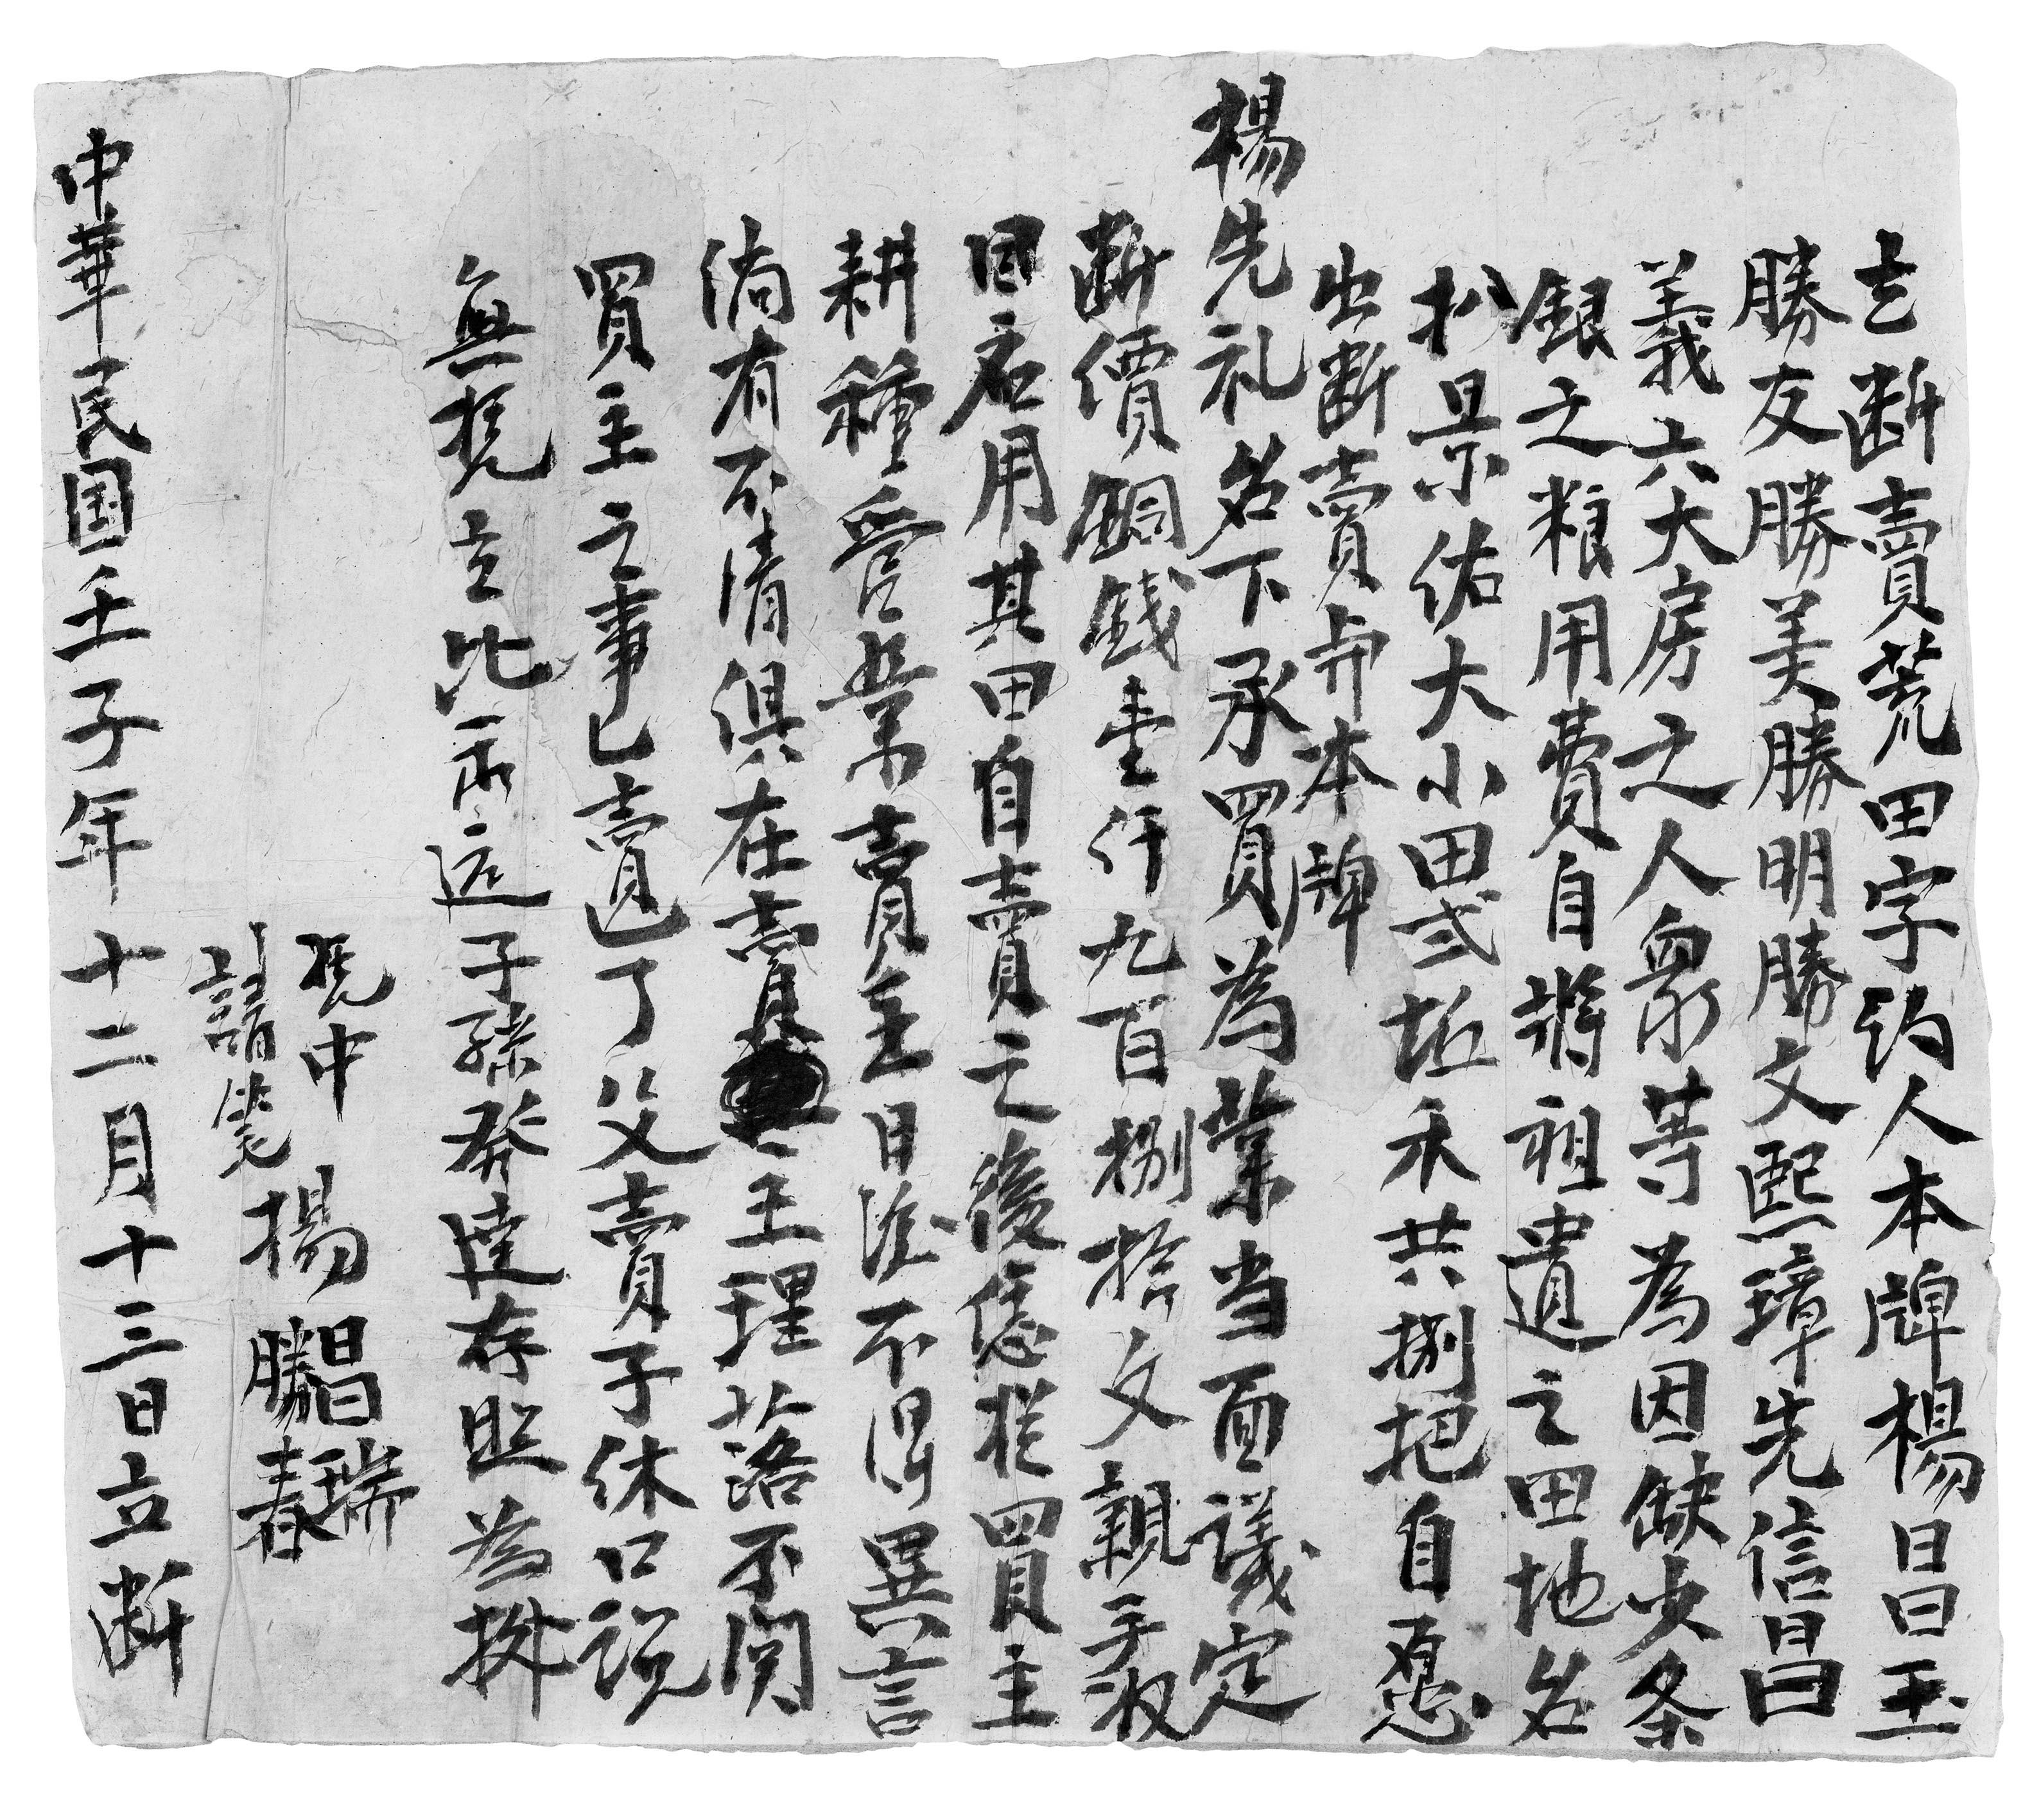 立断賣荒田字约人本牌楊昌玉
勝友勝美勝明勝文熙璋先信昌
義六大房之人衆等為因缺少条
銀之粮用費自將祖遺之田地名
扒景佑大小田弍坵禾共捌把自愿
出断賣与本牌
楊先礼名下承買為業当面議定
断價銅錢壹仟九百捌拾文親手收
回応用其田自賣之後憑從買主
耕種管業賣主日後不得異言
倘有不清俱在賣主理落不関
買主之事已賣过了父賣子休口説
無凭立此永遠子孫發達存照為據
凭中 楊昌瑞
請筆 勝春
中華民国壬子年十二月十三日立断